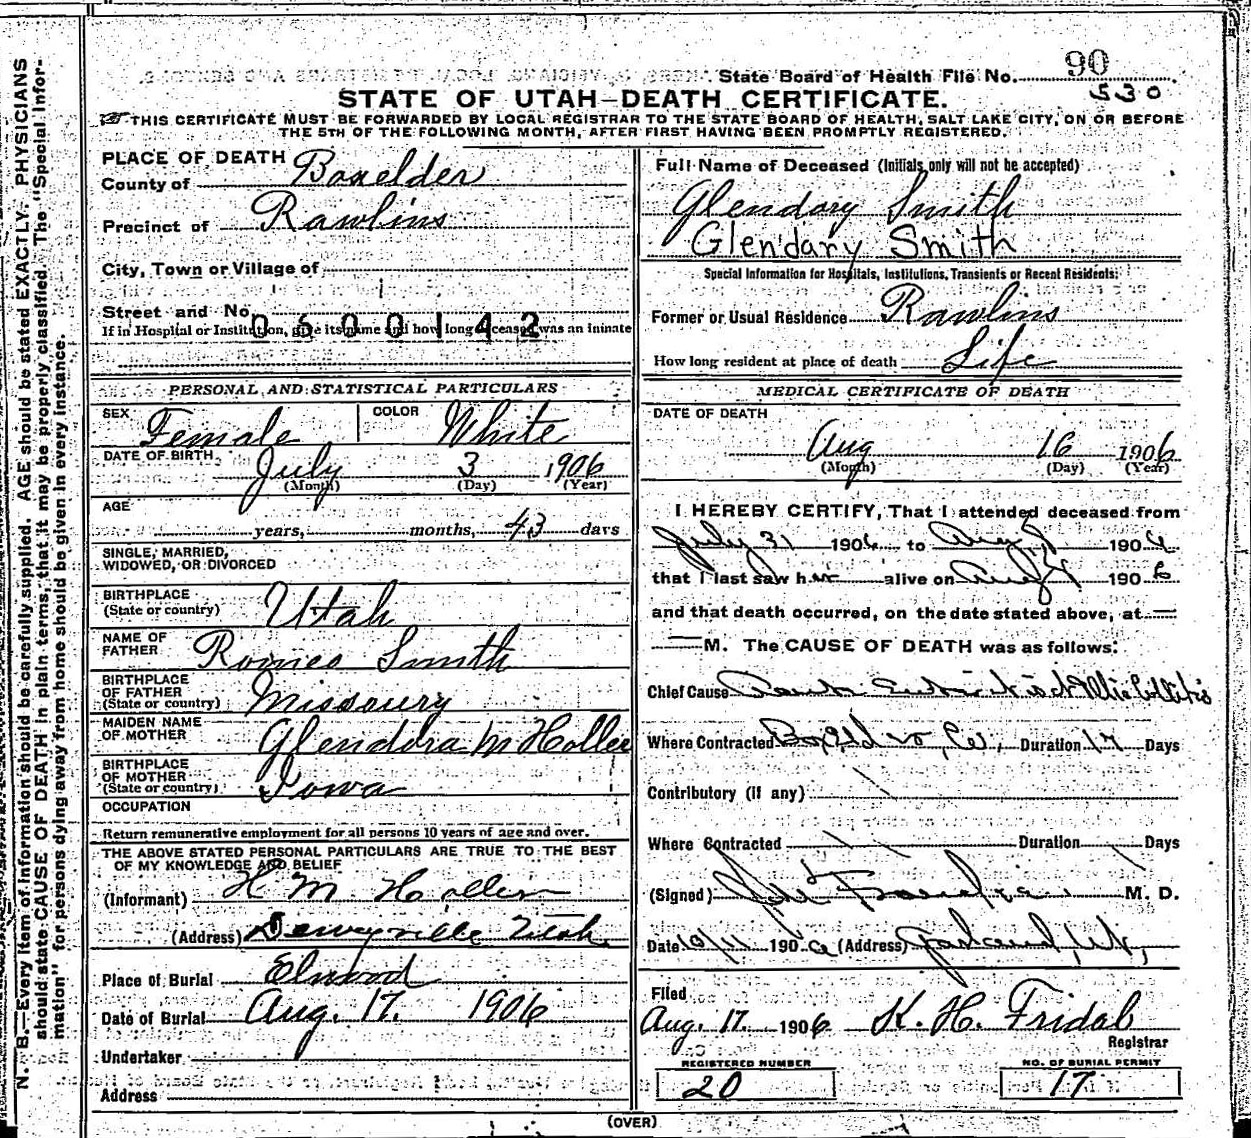 State Board of Health File No. 90
530
STATE OF UTAH—DEATH CERTIFICATE.
THIS CERTIFICATE MUST BE FORWARDED BY LOCAL REGISTRAR TO THE STATE BOARD OF HEALTH, SALT LAKE CITY, ON OR BEFORE
THE 5TH OF THE FOLLOWING MONTH, AFTER FIRST HAVING BEEN PROMPTLY REGISTERED.
N. B.—Every item of information should be carefully supplied. AGE should be stated EXACTLY. PHYSICIANS
should state CAUSE OF DEATH in plain terms, that it may be properly classified. The "Special Infor-
mation" for persons dying away from home should be given in every instance.
PLACE OF DEATH
County of Boxelder
Precinct of Rawlins
City, Town or Village of
Street and No.
0600142
If in Hospital or Institution, give its name and how long deceased was an inmate
PERSONAL AND STATISTICAL PARTICULARS
SEX Female COLOR White
DATE OF BIRTH July 3 1906
(Month) (Day) (Year)
AGE
years, months, 43 days
SINGLE, MARRIED,
WIDOWED, OR DIVORCED
BIRTHPLACE
(State or country) Utah
NAME OF
FATHER Romeo Smith
BIRTHPLACE
OF FATHER
(State or country) Missoury
MAIDEN NAME
OF MOTHER Glendora M Hollee
BIRTHPLACE
OF MOTHER
(State or country) Iowa
OCCUPATION
Return remunerative employment for all persons 10 years of age and over.
THE ABOVE STATED PERSONAL PARTICULARS ARE TRUE TO THE BEST
OF MY KNOWLEDGE AND BELIEF
(Informant) H M Hollen
(Address) Deweyville Utah
Place of Burial Elwood
Date of Burial Aug. 17. 1906
Undertaker
Address
Full Name of Deceased (Initials only will not be accepted)
Glendary Smith
Glendary Smith
Special Information for Hospitals, Institutions, Transients or Recent Residents:
Former or Usual Residence Rawlins
How long resident at place of death Life
MEDICAL CERTIFICATE OF DEATH
DATE OF DEATH
Aug 16 1906
(Month) (Day) (Year)
I HEREBY CERTIFY, That I attended deceased from
July 31 1906 to Aug 1906
that I last saw her alive on Aug 1906
and that death occurred, on the date stated above, at
M. The CAUSE OF DEATH was as follows:
Chief Cause
Where Contracted Boxelder Co., Duration 17 Days
Contributory (if any)
Where Contracted Duration Days
(Signed) M. D.
Date 10/11 1906 (Address) Garland, Ut,
Filed
Aug. 17. 1906 K. H. Fridal
Registrar
REGISTERED NUMBER
20
NO. OF BURIAL PERMIT
17
(OVER)